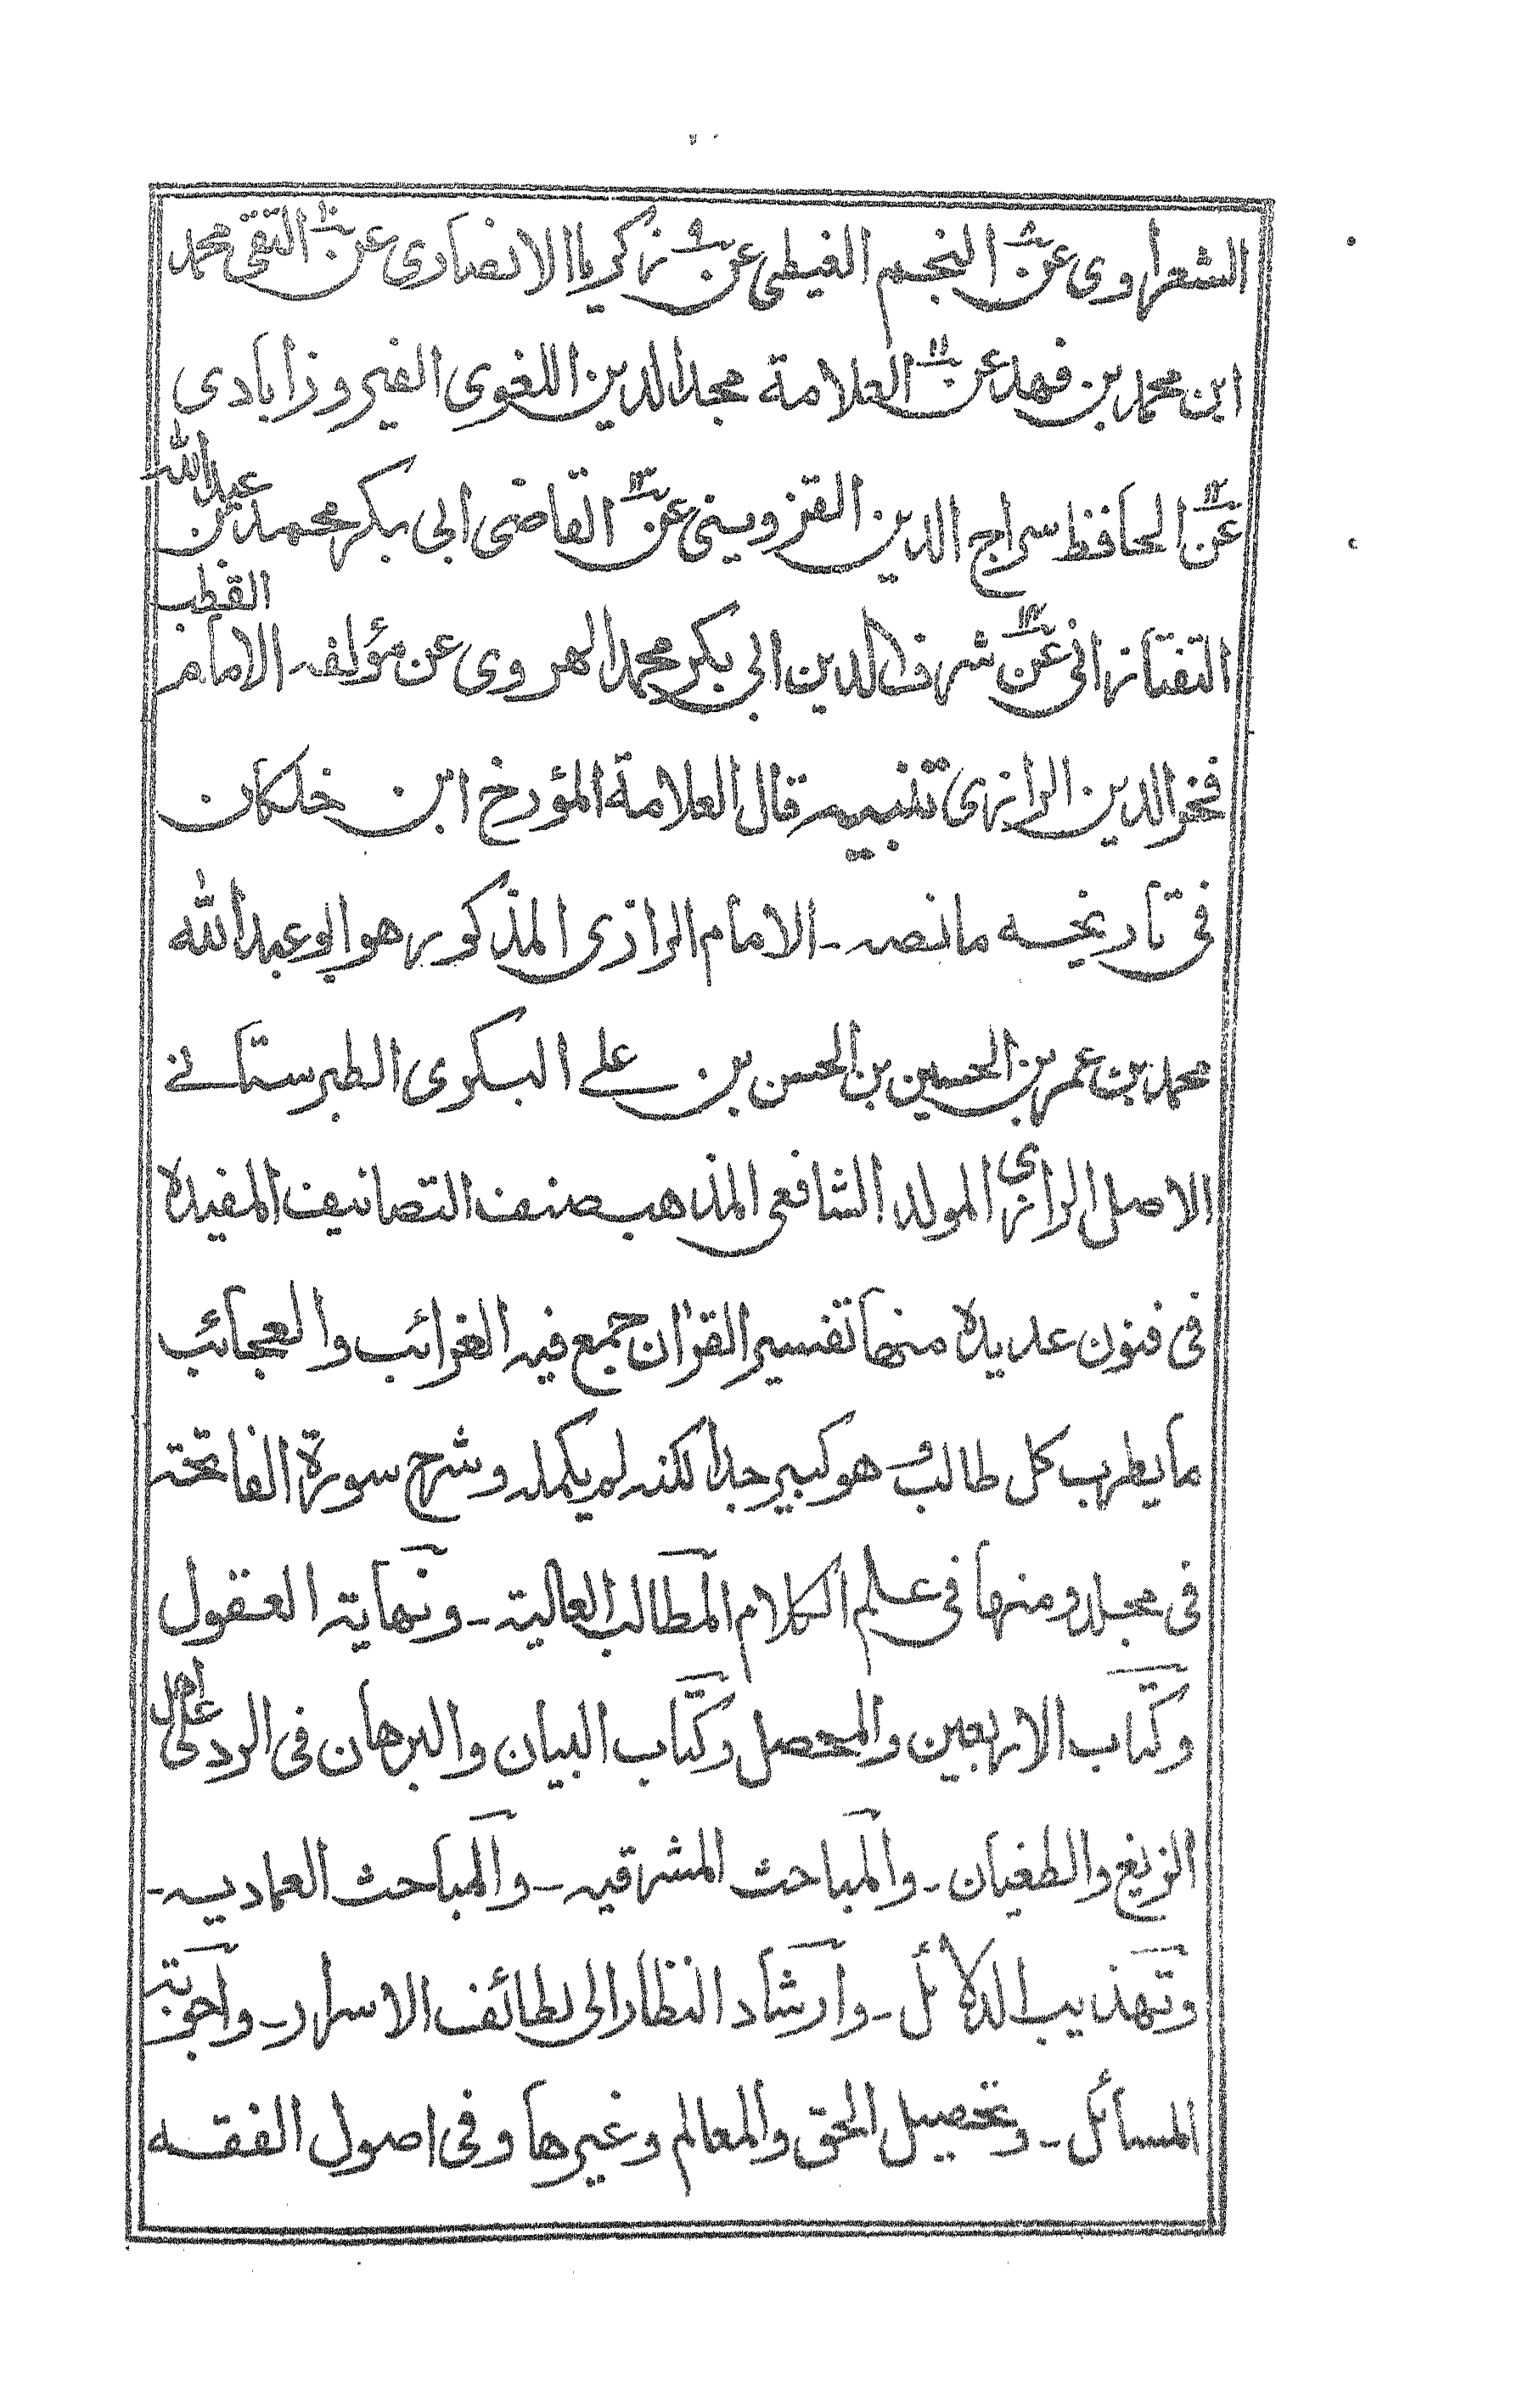 الشعراوى عن ٨ النجم الغيطى عن ٩ زكريا الانصارى عن ١٠ التقى محمد
ابن محمد بن فهد عن ١١ العلامة مجد الدين اللغوى الفيروزابادى
عن ١٢ الحافظ سراج الدين القزوينى عن ١٣ القاضى ابى بكر محمد بن عبد الله
التفتازانى عن ١٤ شرف الدين ابى بكر محمد الهروى عن مؤلفه الامام القطب
فخر الدين الرازى تنبيه قال العلامة المؤرخ ابن خلكان
فى تاريخه مانصه ـ الامام الرازى المذكور هو ابو عبد الله
محمد بن عمر بن الحسين بن الحسن بن على البكرى الطبرستانے
الاصل الرازى المولد الشافعى المذهب صنف التصانيف المفيدة
فى فنون عديدة منها تفسير القرآن جمع فيه الغرائب والعجائب
ما يطرب كل طالب و هو كبير جدا لكنه لم يكمله وشرح سورة الفاتحة
فى مجلد ومنها فى علم الكلام المطالب العالية ـ ونهاية العقول
وكتاب الاربعين والمحصل وكتاب البيان والبرهان فى الرد على اهل
الزيغ والطغيان ـ والمباحث المشرقيه ـ والمباحث العماديه ـ
وتهذيب الدلائل ـ وارشاد النظار الى لطائف الاسرار ـ واجوبة
المسائل ـ وتحصيل الحق والمعالم وغيرها وفى اصول الفقه